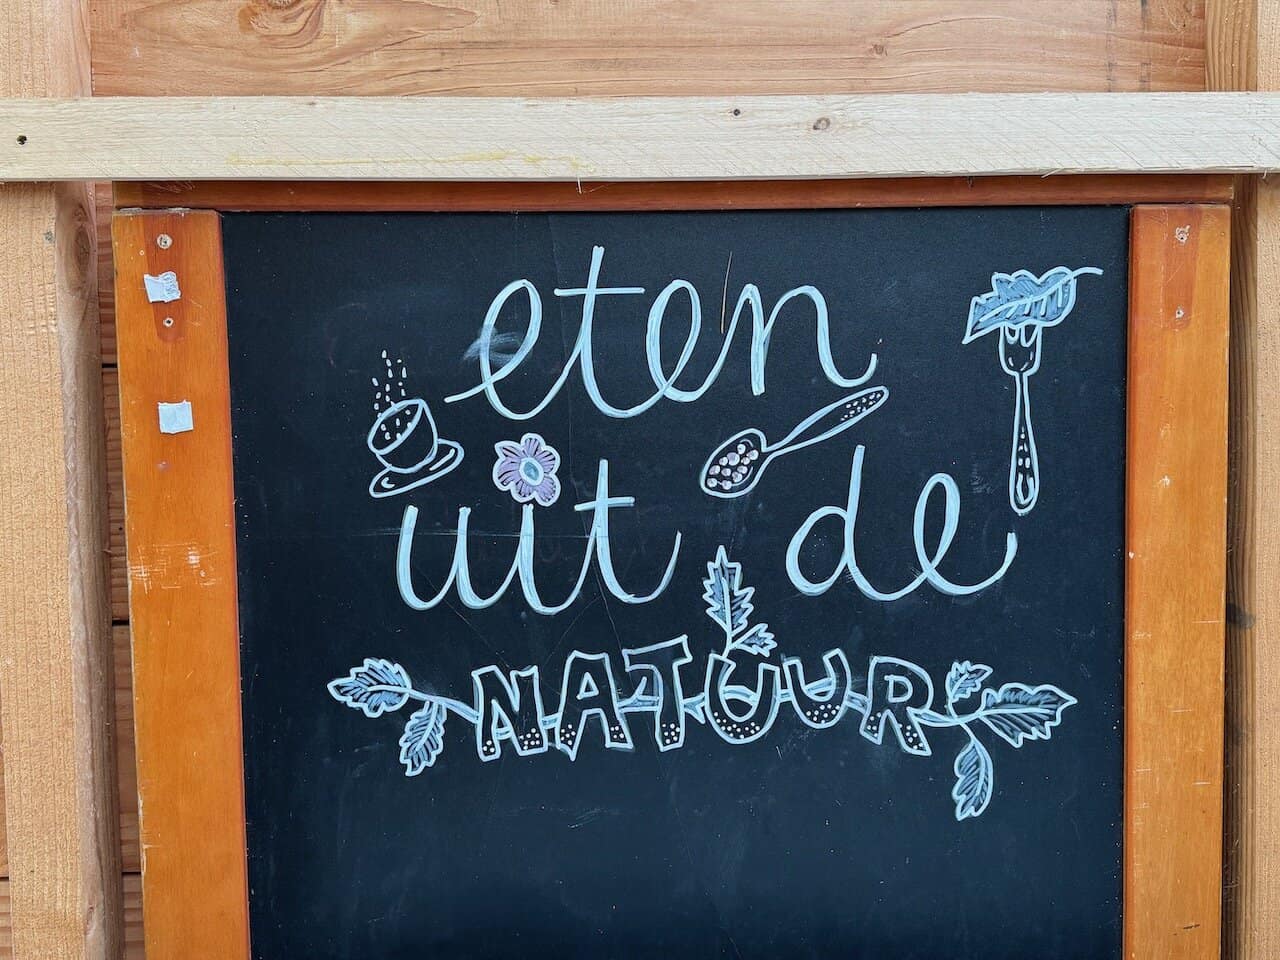 eten
uit de
NATUUR